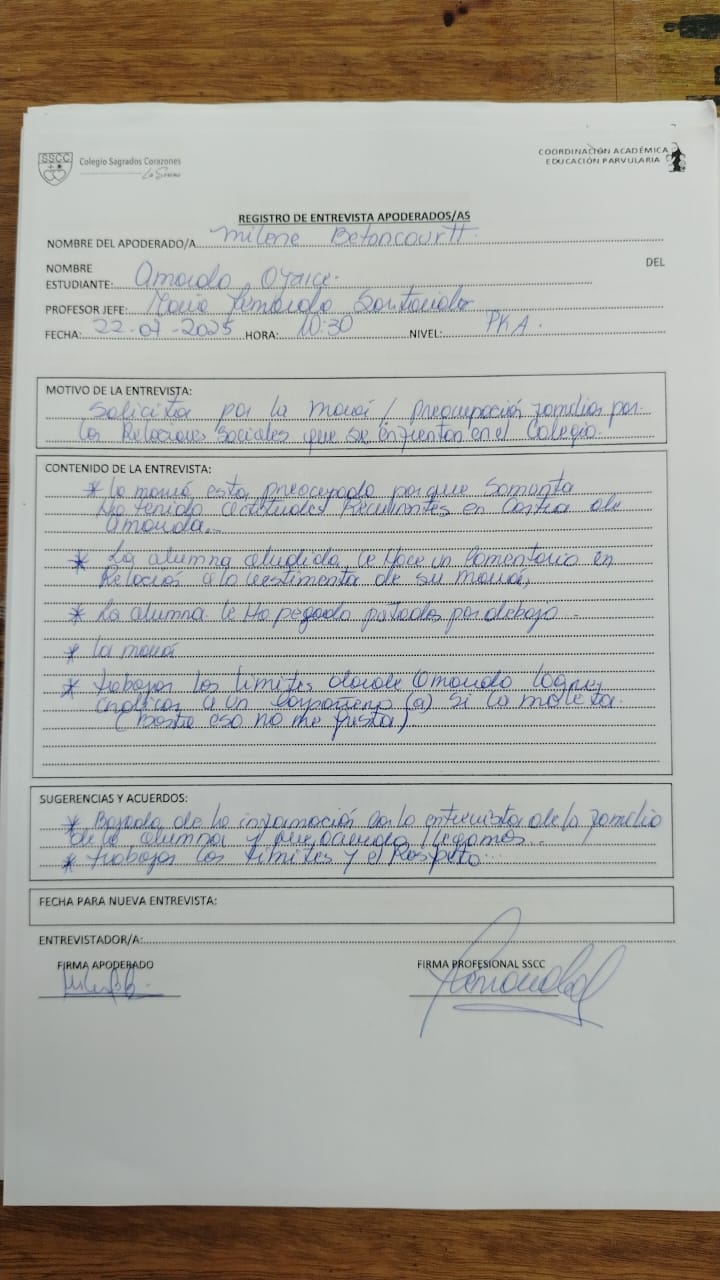 SSCC
Colegio Sagrados Corazones
La Serena
COORDINACIÓN ACADÉMICA
EDUCACIÓN PARVULARIA
REGISTRO DE ENTREVISTA APODERADOS/AS
NOMBRE DEL APODERADO/A Milene Betancourtt.
NOMBRE DEL
ESTUDIANTE: Amanda
PROFESOR JEFE: María Santander
FECHA: 22-07-2025 HORA: 10:30 NIVEL: PKA.
MOTIVO DE LA ENTREVISTA:
Solicita por la mamá / Preocupación familiar por
las Relaciones Sociales que se enfrentan en el Colegio.
CONTENIDO DE LA ENTREVISTA:
* La mamá esta preocupada porque Samanta
Ha tenido actitudes Recurrentes en Contra de
Amanda.
* La alumna aludida, le Hace un Comentario en
Relación a la vestimenta de su mamá,
* La alumna le Ha pegado patadas por debajo.
* La mamá
* trabajar los límites donde Amanda logre
a un Compañero (a) si la molesta.
(basta eso no me gusta)
SUGERENCIAS Y ACUERDOS:
* Bajada de la información con la entrevista de la familia
de la alumna y que acuerdo llegamos.
* trabajar los límites y el Respeto.
FECHA PARA NUEVA ENTREVISTA:
ENTREVISTADOR/A:
FIRMA APODERADO FIRMA PROFESIONAL SSCC